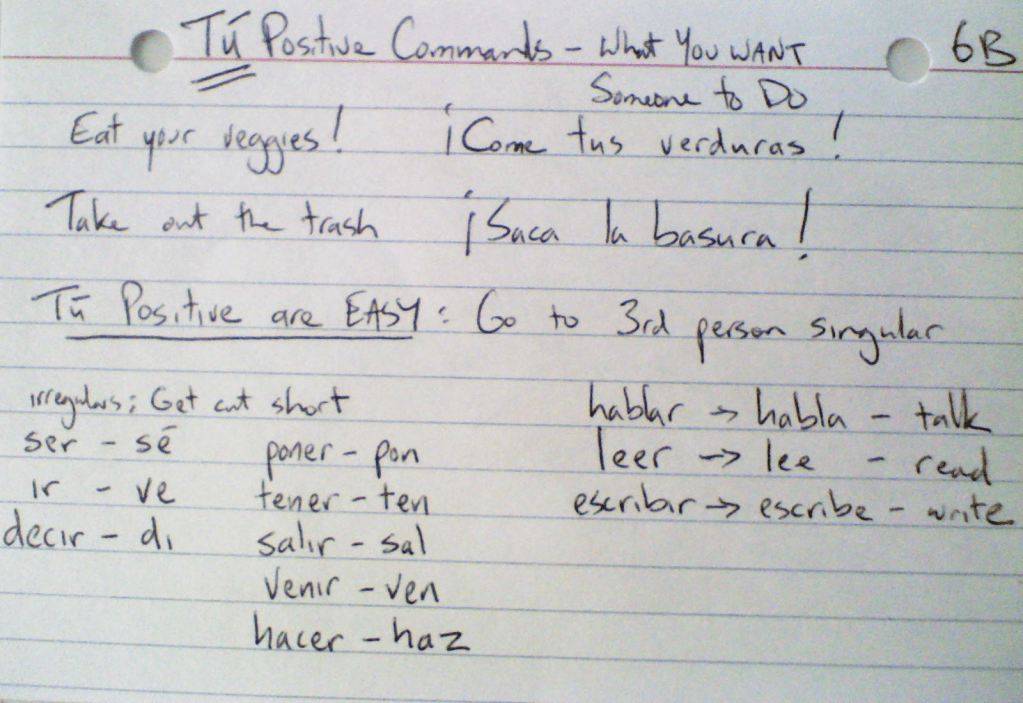 Tú Positive Commands - What You WANT 6B
Someone to Do
Eat your veggies! ¡Come tus verduras!
Take out the trash ¡Saca la basura!
Tú Positive are EASY: Go to 3rd person singular
irregulars; Get cut short
ser - sé
ir - ve
decir - di
poner - pon
tener - ten
salir - sal
venir - ven
hacer - haz
hablar → habla - talk
leer → lee - read
escribir → escribe - write